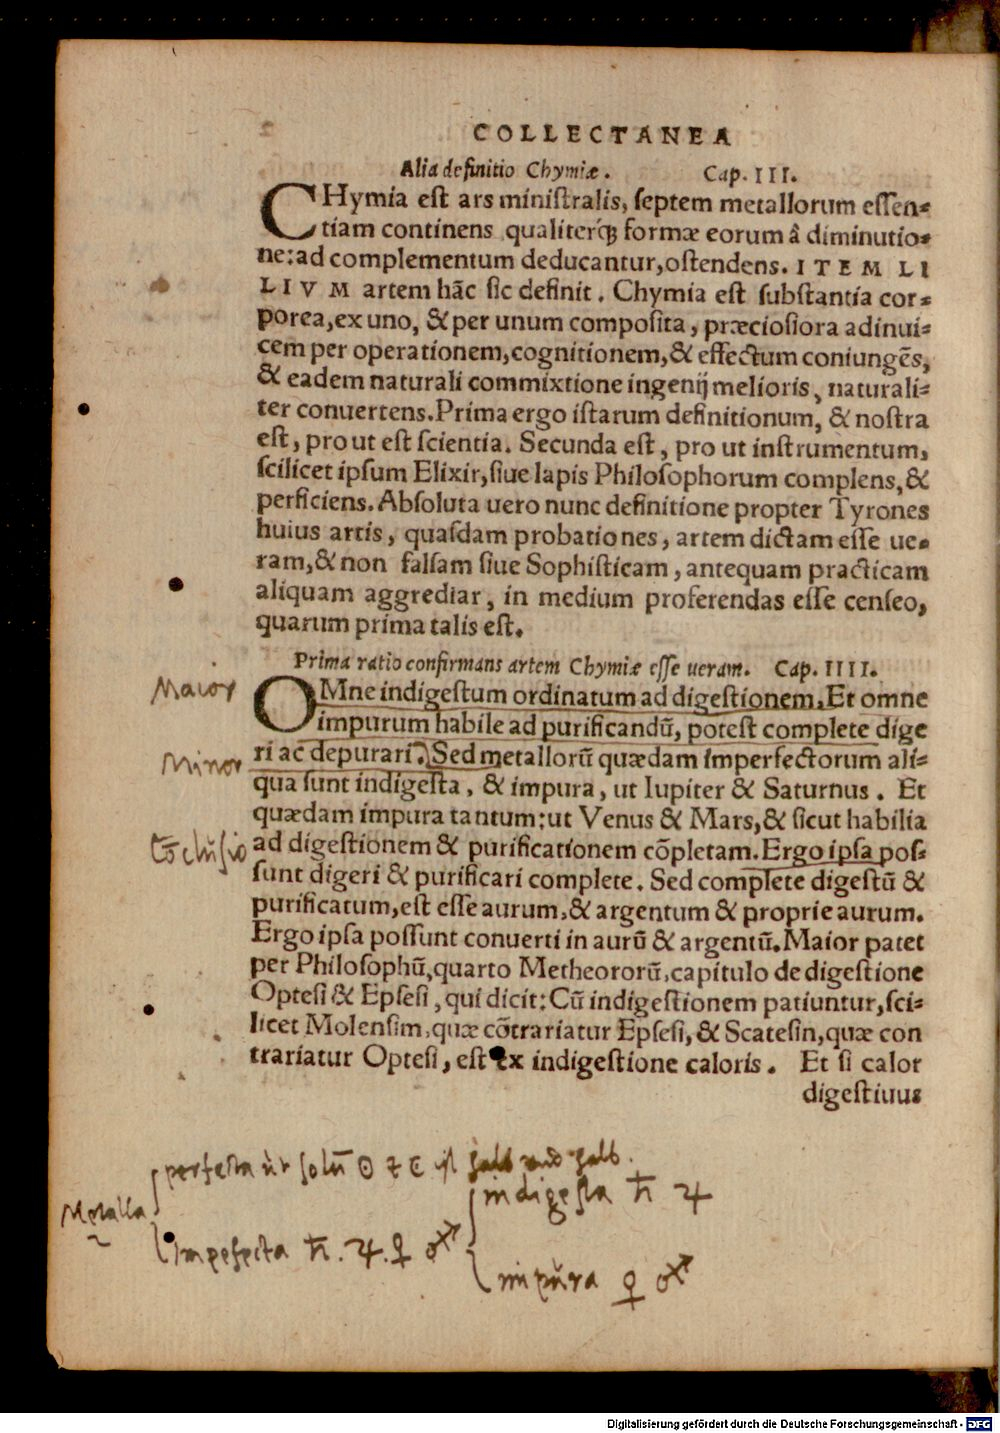 COLLECTANEA
Alia definitio Chymiæ. Cap. III.
CHymia est ars ministralis, septem metallorum essen⸗
tiam continens qualiterq́; formæ eorum â diminutio⸗
ne: ad complementum deducantur, ostendens. ITEM LI
LIVM artem hãc sic definit. Chymia est substantia cor⸗
porea, ex uno, & per unum composita, præciosiora adinui⸗
cem per operationem, cognitionem, & effectum coniungẽs,
& eadem naturali commixtione ingenij melioris, naturali⸗
ter conuertens. Prima ergo istarum definitionum, & nostra
est, pro ut est scientia. Secunda est, pro ut instrumentum,
scilicet ipsum Elixir, siue lapis Philosophorum complens, &
perficiens. Absoluta uero nunc definitione propter Tyrones
huius artis, quasdam probationes, artem dictam esse ue⸗
ram, & non falsam siue Sophisticam, antequam practicam
aliquam aggrediar, in medium proferendas esse censeo,
quarum prima talis est.
Prima ratio confirmans artem Chymiæ esse ueram. Cap. IIII.
Maior
OMne indigestum ordinatum ad digestionem, Et omne
impurum habile ad purificandũ, potest complete dige
Minor
ri ac depurari. Sed metallorũ quædam imperfectorum ali⸗
qua sunt indigesta, & impura, ut Iupiter & Saturnus. Et
quædam impura tantum: ut Venus & Mars, & sicut habilia
Cõclusio
ad digestionem & purificationem cõpletam. Ergo ipsa pos⸗
sunt digeri & purificari complete. Sed complete digestũ &
purificatum, est esse aurum, & argentum & proprie aurum.
Ergo ipsa possunt conuerti in aurũ & argentũ. Maior patet
per Philosophũ, quarto Metheororũ, capitulo de digestione
Optesi & Epsesi, qui dicit: Cũ indigestionem patiuntur, sci⸗
licet Molensim, quæ cõtrariatur Epsesi, & Scatesin, quæ con
trariatur Optesi, est ex indigestione caloris. Et si calor
digestiuus
perfecta ut solũ ☉ ☾
indigesta ♄ ♃
Metalla
impefecta ♄. ♃. ♀ ♂
impura ♀ ♂
Digitalisierung gefördert durch die Deutsche Forschungsgemeinschaft - DFG